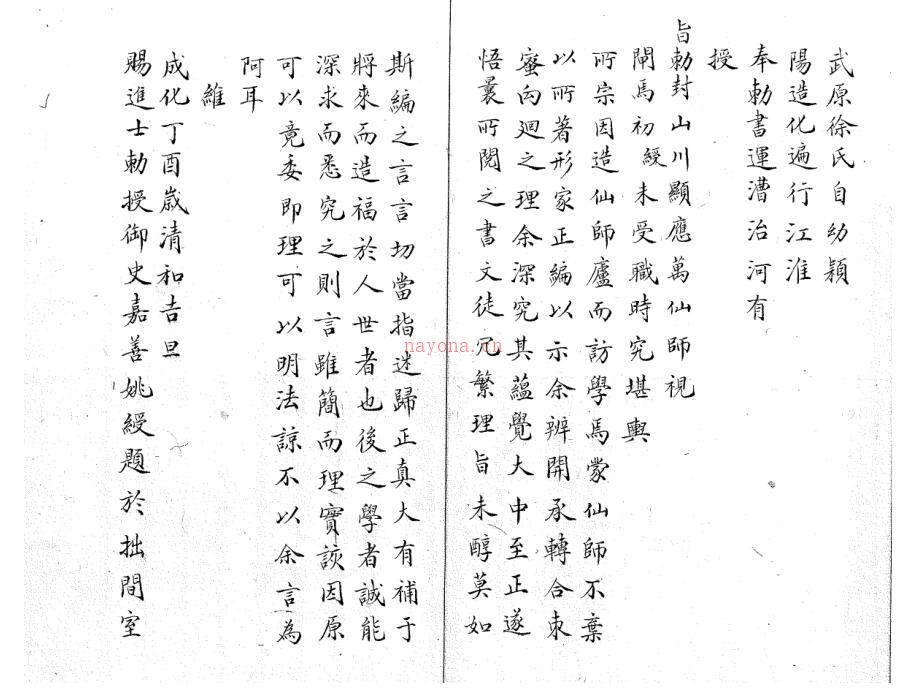 武原徐氏自幼穎
陽造化遍行江淮
奉勅書運漕治河有
授
旨勅封山川顯應萬仙師視
閘馬初綬未受職時究堪輿
所宗因造仙師廬而訪學焉蒙仙師不棄
以所著形家正編以示余辨開承轉合朿
蜜向廻之理余深究其蘊覺大中至正遂
悟曩所閱之書文徒冗繁理旨未醇莫如
斯編之言言切當指迷歸正真大有補于
將來而造福於人世者也後之學者誠能
深求而悉究之則言雖簡而理實該因原
可以竟委即理可以明法諒不以余言為
阿耳
維
成化丁酉歲清和吉旦
賜進士勅授御史嘉善姚綬題於拙間室
nayona.cn